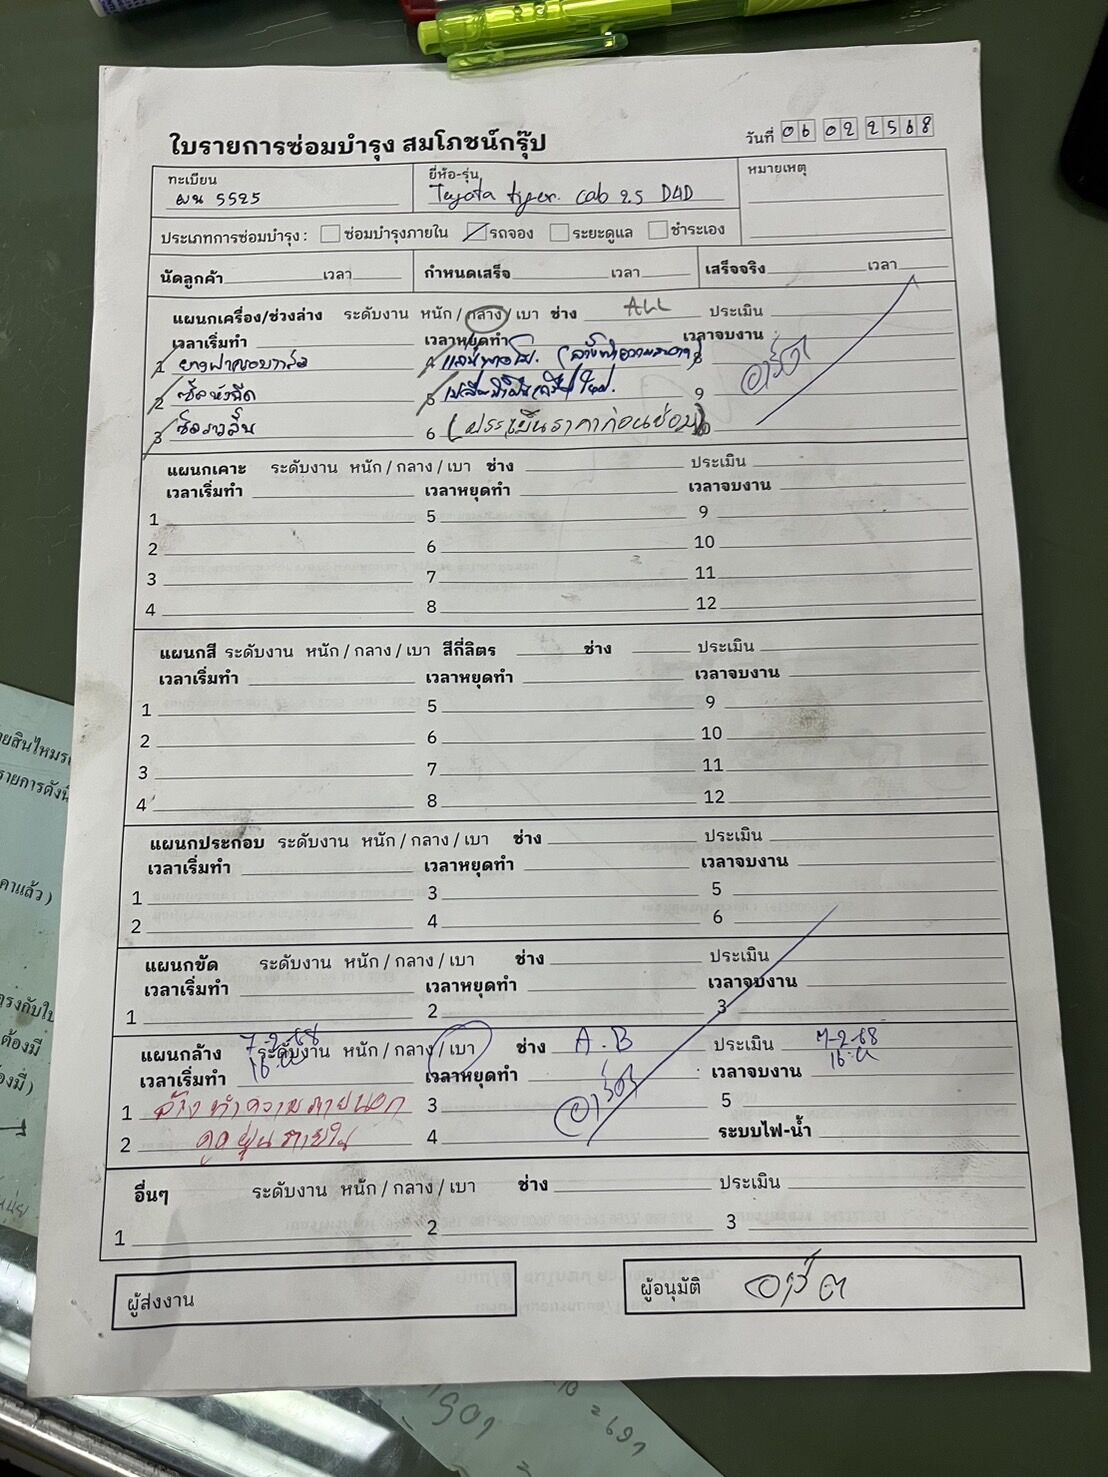 ใบรายการซ่อมบำรุง สมโภชน์กรุ๊ป
วันที่ 06 02 2568
ทะเบียน
ผน 5525
ยี่ห้อ-รุ่น
Toyota tiger. cab 2.5 D4D
หมายเหตุ
ประเภทการซ่อมบำรุง : ซ่อมบำรุงภายใน รถจอง ระยะดูแล ชำระเอง
นัดลูกค้า เวลา กำหนดเสร็จ เวลา เสร็จจริง เวลา
แผนกเครื่อง/ช่วงล่าง ระดับงาน หนัก / กลาง / เบา ช่าง ALL ประเมิน
เวลาเริ่มทำ เวลาหยุดทำ เวลาจบงาน
1 ยางฝาครอบวาล์ว 4
2 ซีลหัวฉีด 5 9
3 ซีลราวลิ้น 6 (ประเมินราคาก่อนซ่อม)
อาร์ต
แผนกเคาะ ระดับงาน หนัก / กลาง / เบา ช่าง ประเมิน
เวลาเริ่มทำ เวลาหยุดทำ เวลาจบงาน
1 5 9
2 6 10
3 7 11
4 8 12
แผนกสี ระดับงาน หนัก / กลาง / เบา สีกี่ลิตร ช่าง ประเมิน
เวลาเริ่มทำ เวลาหยุดทำ เวลาจบงาน
1 5 9
2 6 10
3 7 11
4 8 12
แผนกประกอบ ระดับงาน หนัก / กลาง / เบา ช่าง ประเมิน
เวลาเริ่มทำ เวลาหยุดทำ เวลาจบงาน
1 3 5
2 4 6
แผนกขัด ระดับงาน หนัก / กลาง / เบา ช่าง ประเมิน
เวลาเริ่มทำ เวลาหยุดทำ เวลาจบงาน
1 2 3
แผนกล้าง 7-2-68 ระดับงาน หนัก / กลาง / เบา ช่าง A.B ประเมิน 7-2-68
เวลาเริ่มทำ เวลาหยุดทำ เวลาจบงาน
1 ล้างทำความภายนอก 3 อาร์ต 5
2 ดูดฝุ่นภายใน 4 ระบบไฟ-น้ำ
อื่นๆ ระดับงาน หนัก / กลาง / เบา ช่าง ประเมิน
1 2 3
ผู้ส่งงาน
ผู้อนุมัติ อาร์ต